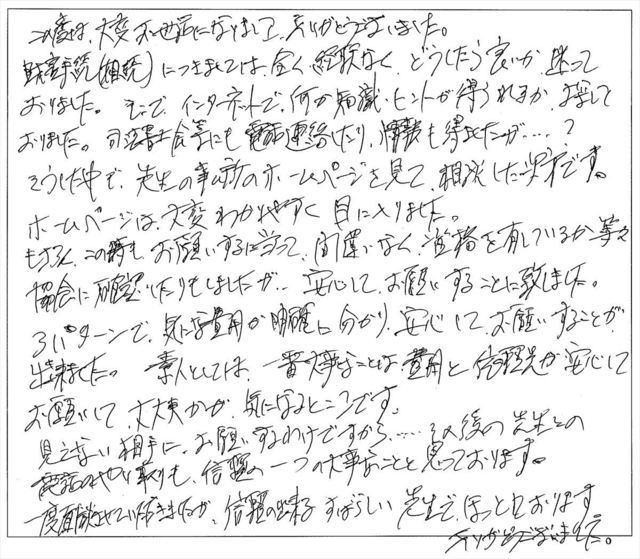 この度は、大変お世話になりまして、ありがとうございました。
財産手続(相続)につきましては、全く経験なく、どうしたら良いか迷って
おりました。そこで、インターネットで、何か知識、ヒントが得られるか、お探して
おりました。司法書士会等にも電話連絡したり、情報も得たが....?
そうした中で、先生の事務所のホームページを見て、相談した次第です。
ホームページは、大変わかりやすく目に入りました。
もちろん、この時もお願いするに当って、間違いなく資格を有しているか等々
協会に確認したりもしましたが、安心して、お願いすることに致しました。
3パターンで、気になる費用が明確に分かり、安心してお願いすることが
出来ました。素人としては、一番大事なことは費用と信頼先が安心して
お願いして大丈夫かが、気になるところです。
見えない相手に、お願いするわけですから、.....その後の先生との
電話のやり取りも、信頼の一つの大事なことと思っております。
一度面談させていただきましたが、信頼の出来るすばらしい先生で、ほっとしております
ありがとうございました。